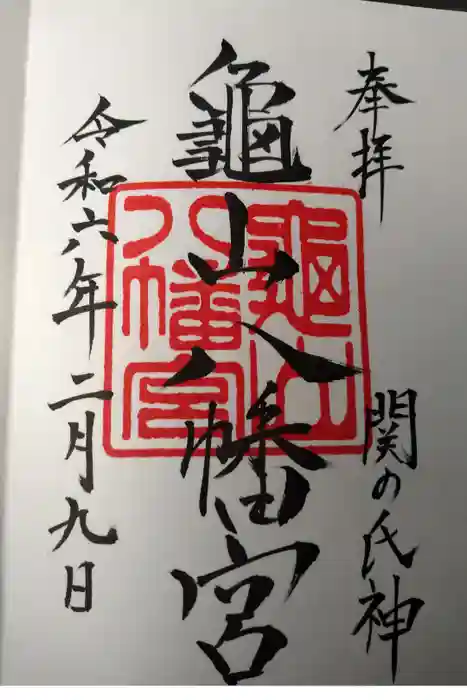 奉拝
関の氏神
龜山八幡宮
龜山
八幡宮
令和六年二月九日